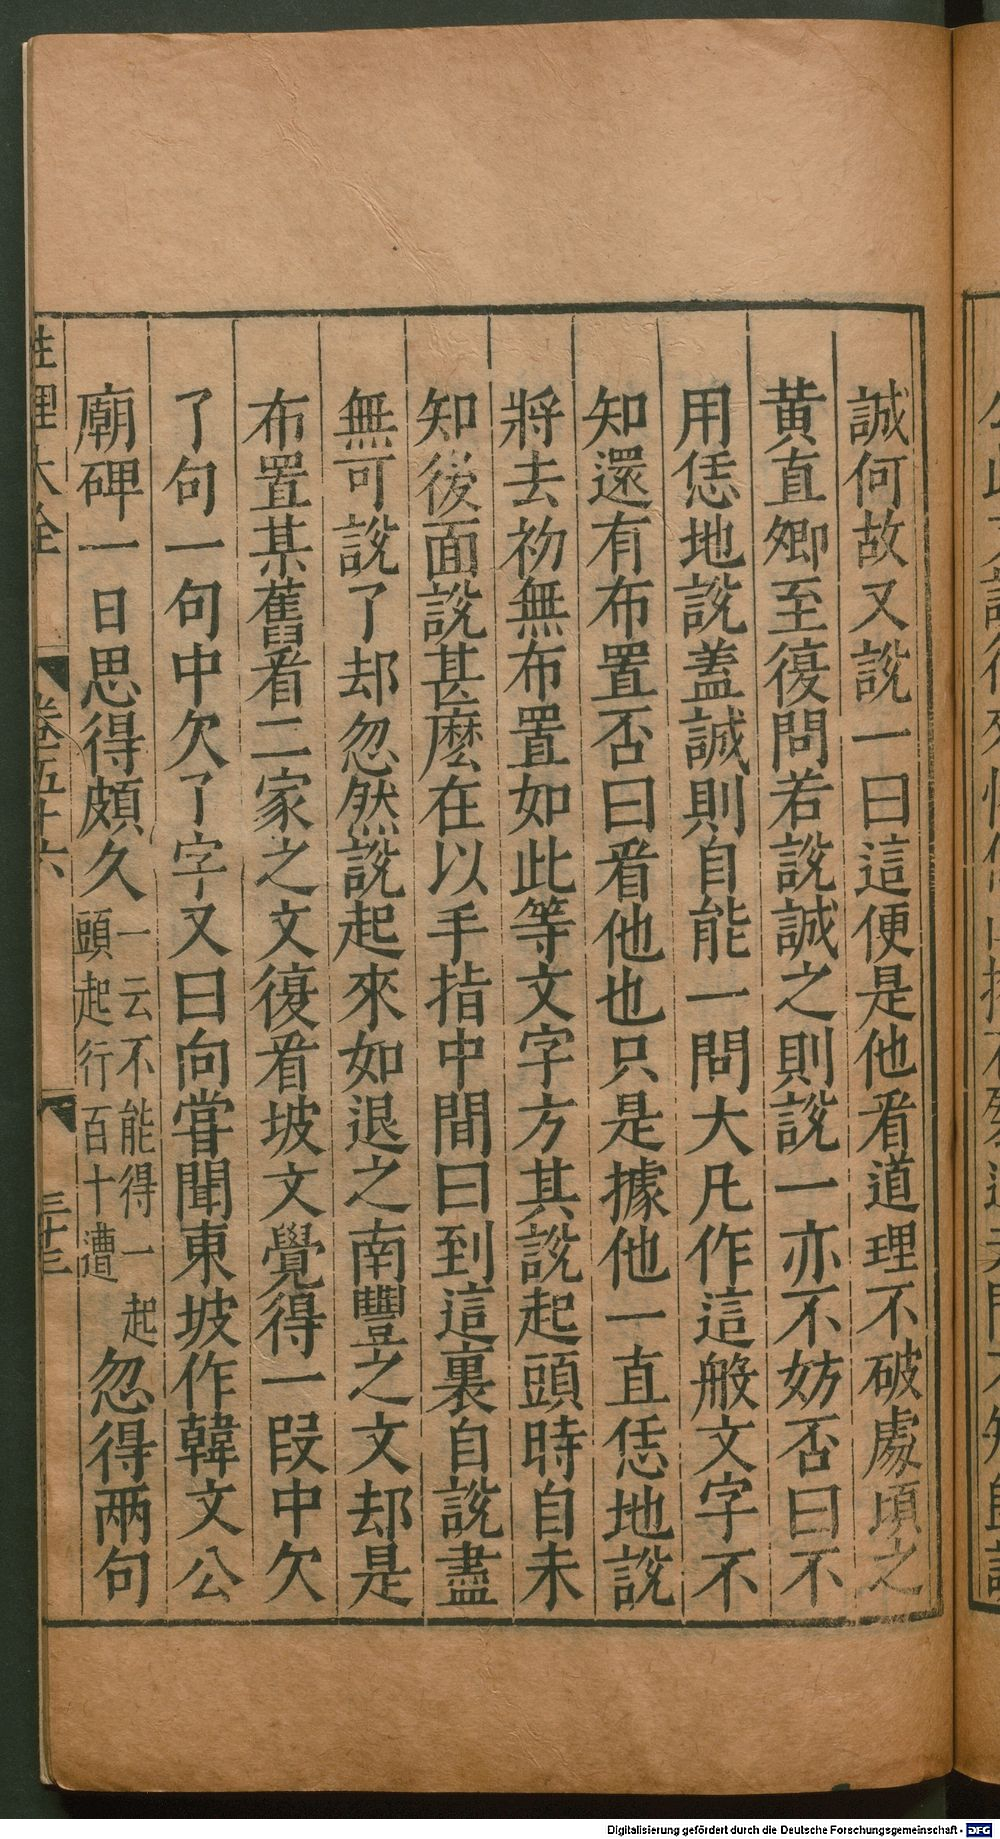 誠何故又說一曰這便是他看道理不破處頃之
黃直卿至復問若說誠之則說一亦不妨否曰不
用恁地說蓋誠則自能一問大凡作這般文字不
知還有布置否曰看他也只是據他一直恁地說
將去初無布置如此等文字方其說起頭時自未
知後面說甚麽在以手指中間曰到這裏自說盡
無可說了却忽然說起來如退之南豐之文却是
布置某舊看二家之文復看坡文覺得一段中欠
了句一句中欠了字又曰向嘗聞東坡作韓文公
廟碑一日思得頗久一云不能得一起頭起行百十遭忽得兩句
性理大全 卷五十六 三十三
Digitalisierung gefördert durch die Deutsche Forschungsgemeinschaft - DFG